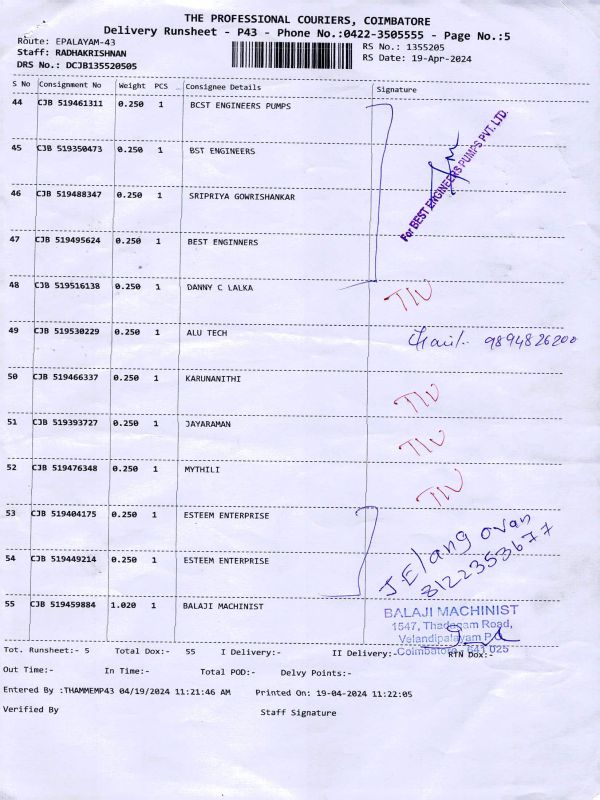 THE PROFESSIONAL COURIERS, COIMBATORE
Delivery Runsheet - P43 - Phone No.:0422-3505555 - Page No.:5
Route: EPALAYAM-43 RS No.: 1355205
Staff: RADHAKRISHNAN RS Date: 19-Apr-2024
DRS No.: DCJB135520505
S No Consignment No Weight PCS Consignee Details Signature
44 CJB 519461311 0.250 1 BCST ENGINEERS PUMPS
For BEST ENGINEERS PUMPS PVT. LTD.
45 CJB 519350473 0.250 1 BST ENGINEERS
46 CJB 519488347 0.250 1 SRIPRIYA GOWRISHANKAR
47 CJB 519495624 0.250 1 BEST ENGINNERS
48 CJB 519516138 0.250 1 DANNY C LALKA
49 CJB 519530229 0.250 1 ALU TECH 9894826200
50 CJB 519466337 0.250 1 KARUNANITHI
51 CJB 519393727 0.250 1 JAYARAMAN
52 CJB 519476348 0.250 1 MYTHILI
53 CJB 519404175 0.250 1 ESTEEM ENTERPRISE
J. Elangovan
8122353677
54 CJB 519449214 0.250 1 ESTEEM ENTERPRISE
55 CJB 519459884 1.020 1 BALAJI MACHINIST
BALAJI MACHINIST
1547, Thadagam Road,
Velandipalayam P.O
Coimbatore - 641 025
Tot. Runsheet:- 5 Total Dox:- 55 I Delivery:- II Delivery:- RTN Dox:-
Out Time:- In Time:- Total POD:- Delvy Points:-
Entered By :THAMMEMP43 04/19/2024 11:21:46 AM Printed On: 19-04-2024 11:22:05
Verified By Staff Signature